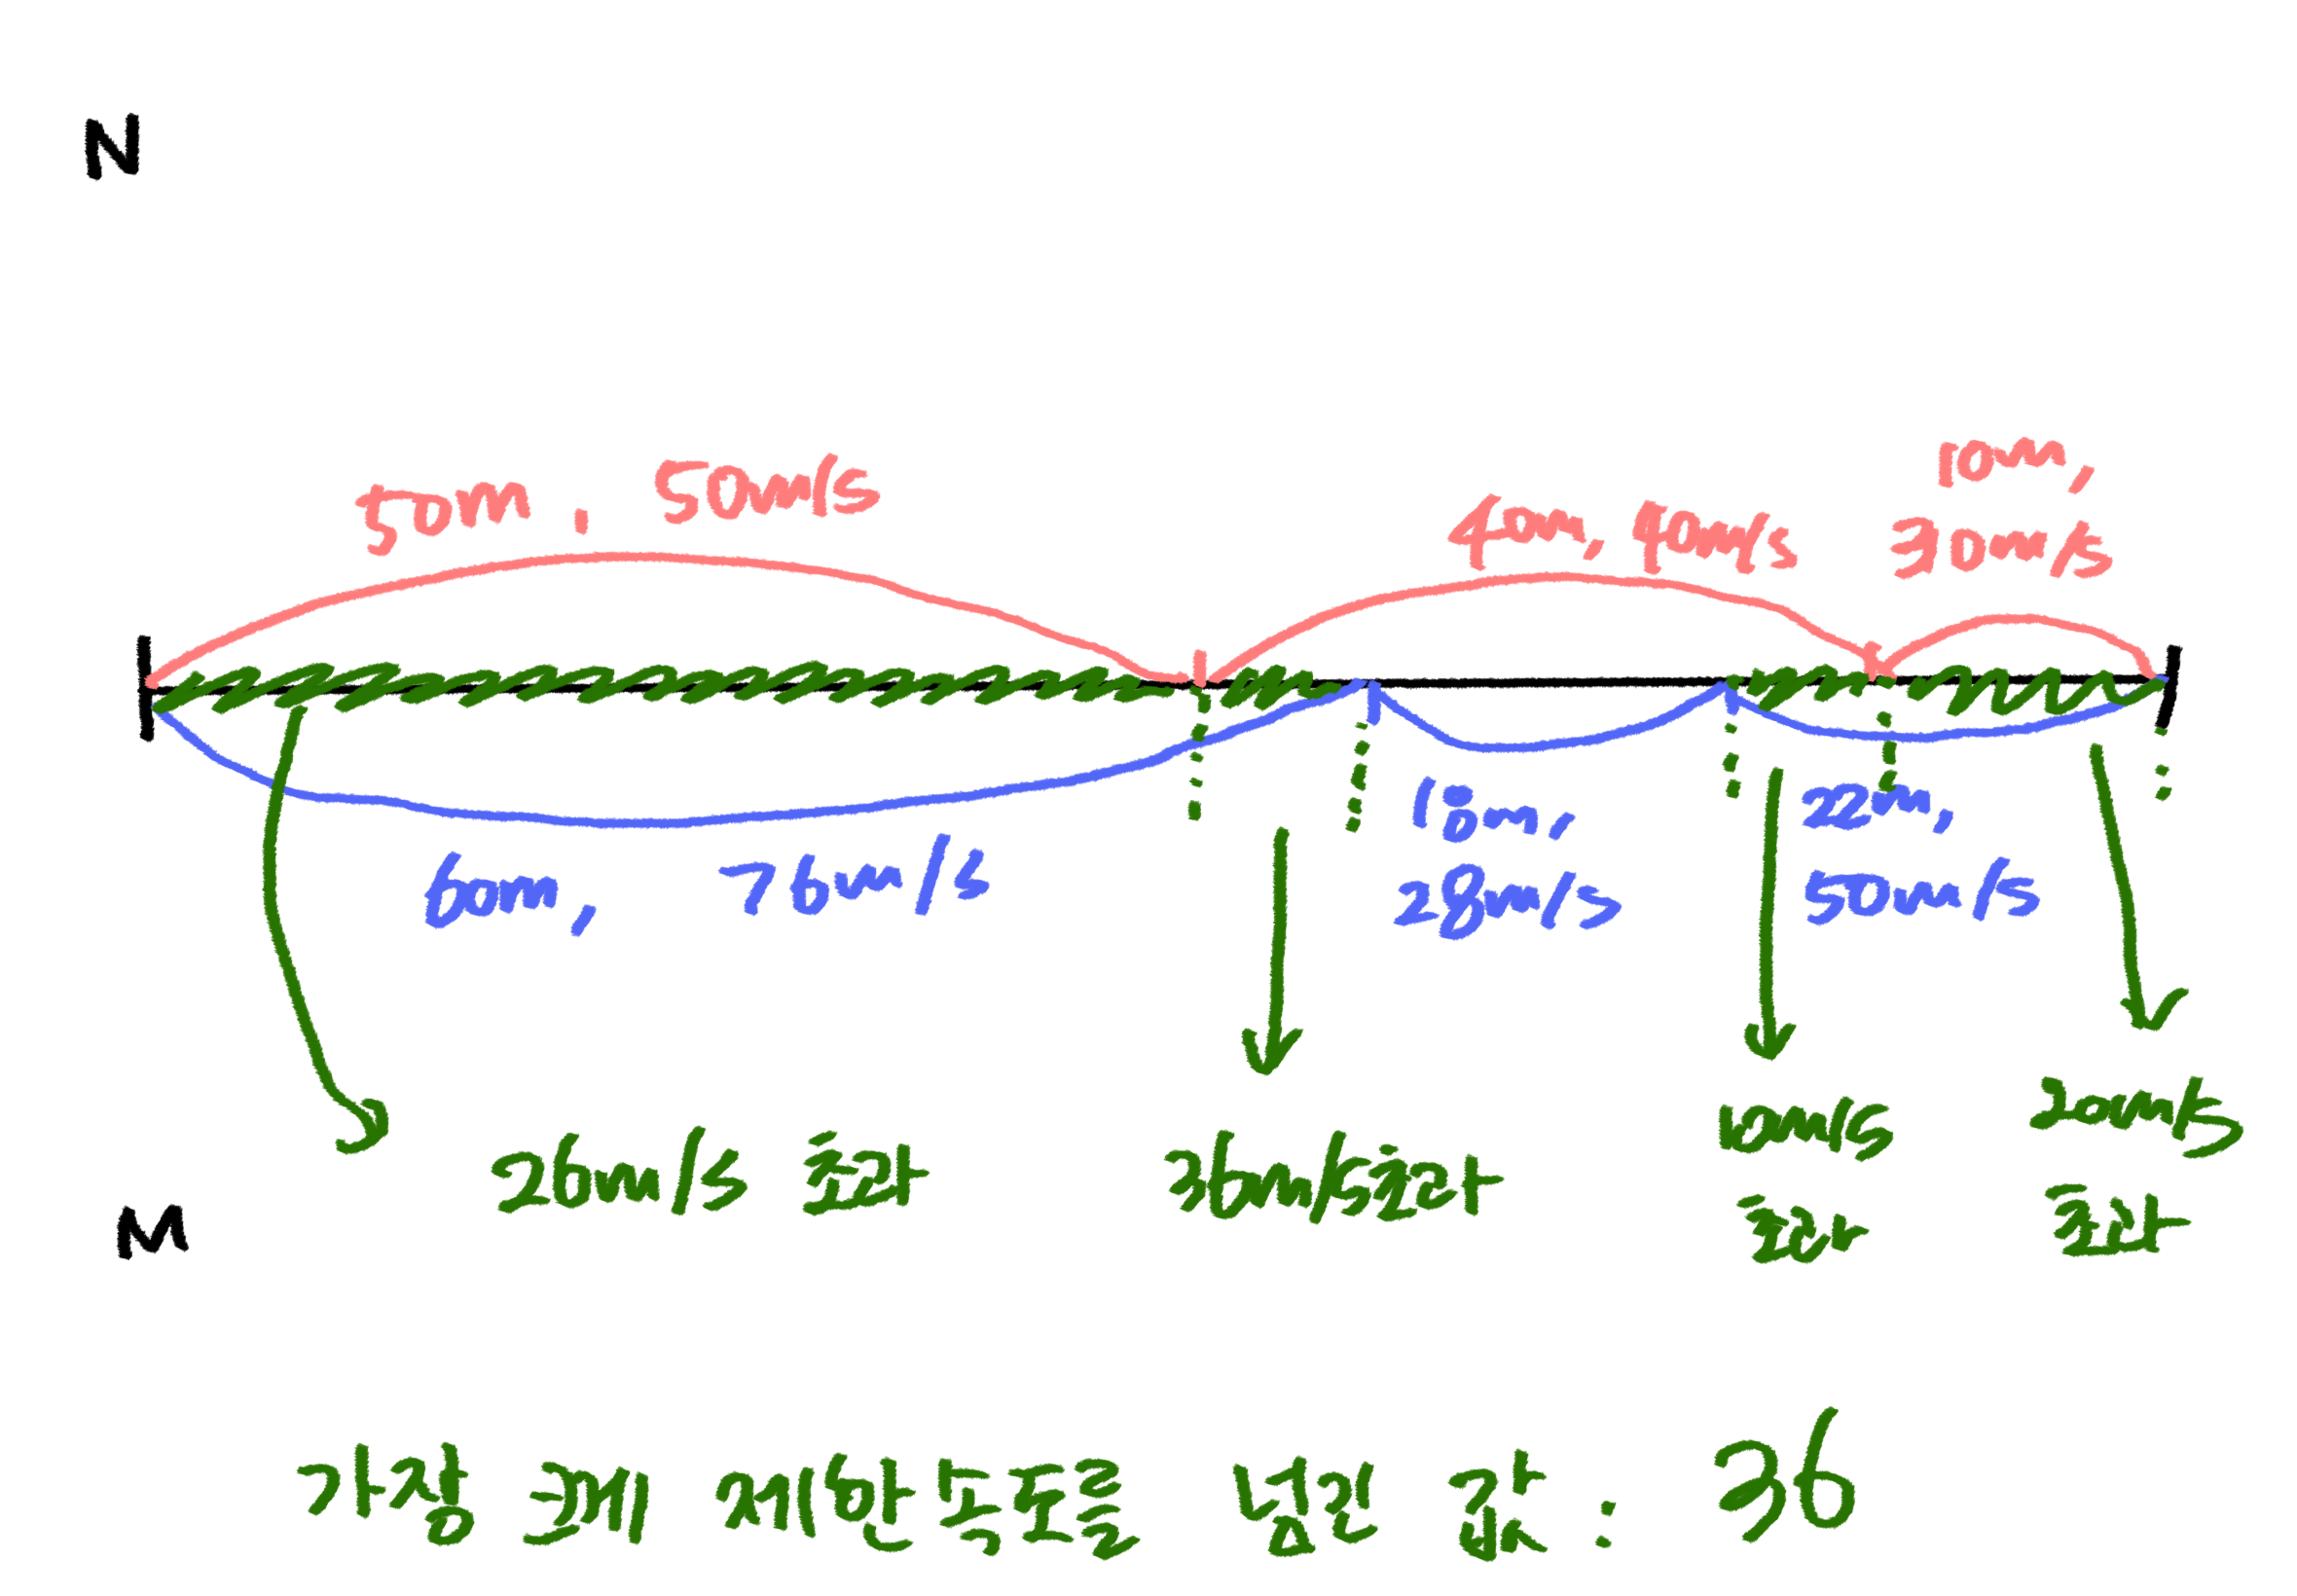 N
50m, 50m/s
40m, 40m/s
10m,
30m/s
60m, 76m/s
18m,
28m/s
22m,
50m/s
26m/s 초과
36m/s초과
10m/s
초과
20m/s
초과
M
가장 크게 제한속도를 넘긴 값 : 36